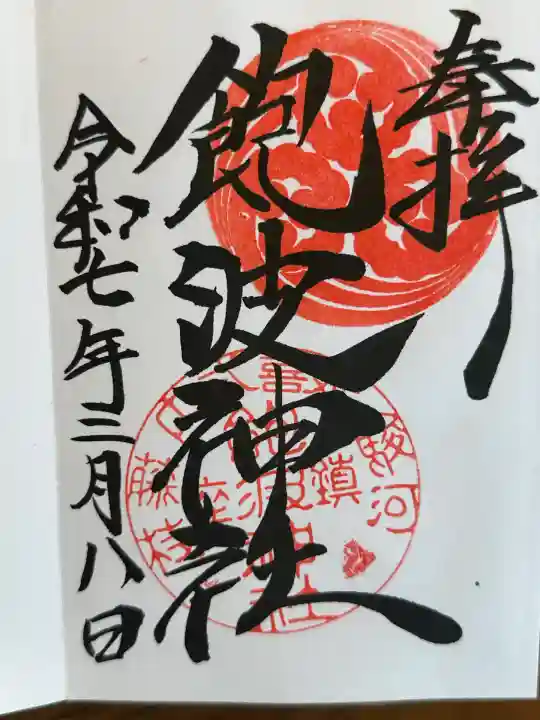 奉拝
飽波神社
令和七年三月八日
駿河
鎮座
藤枝
飽波神社